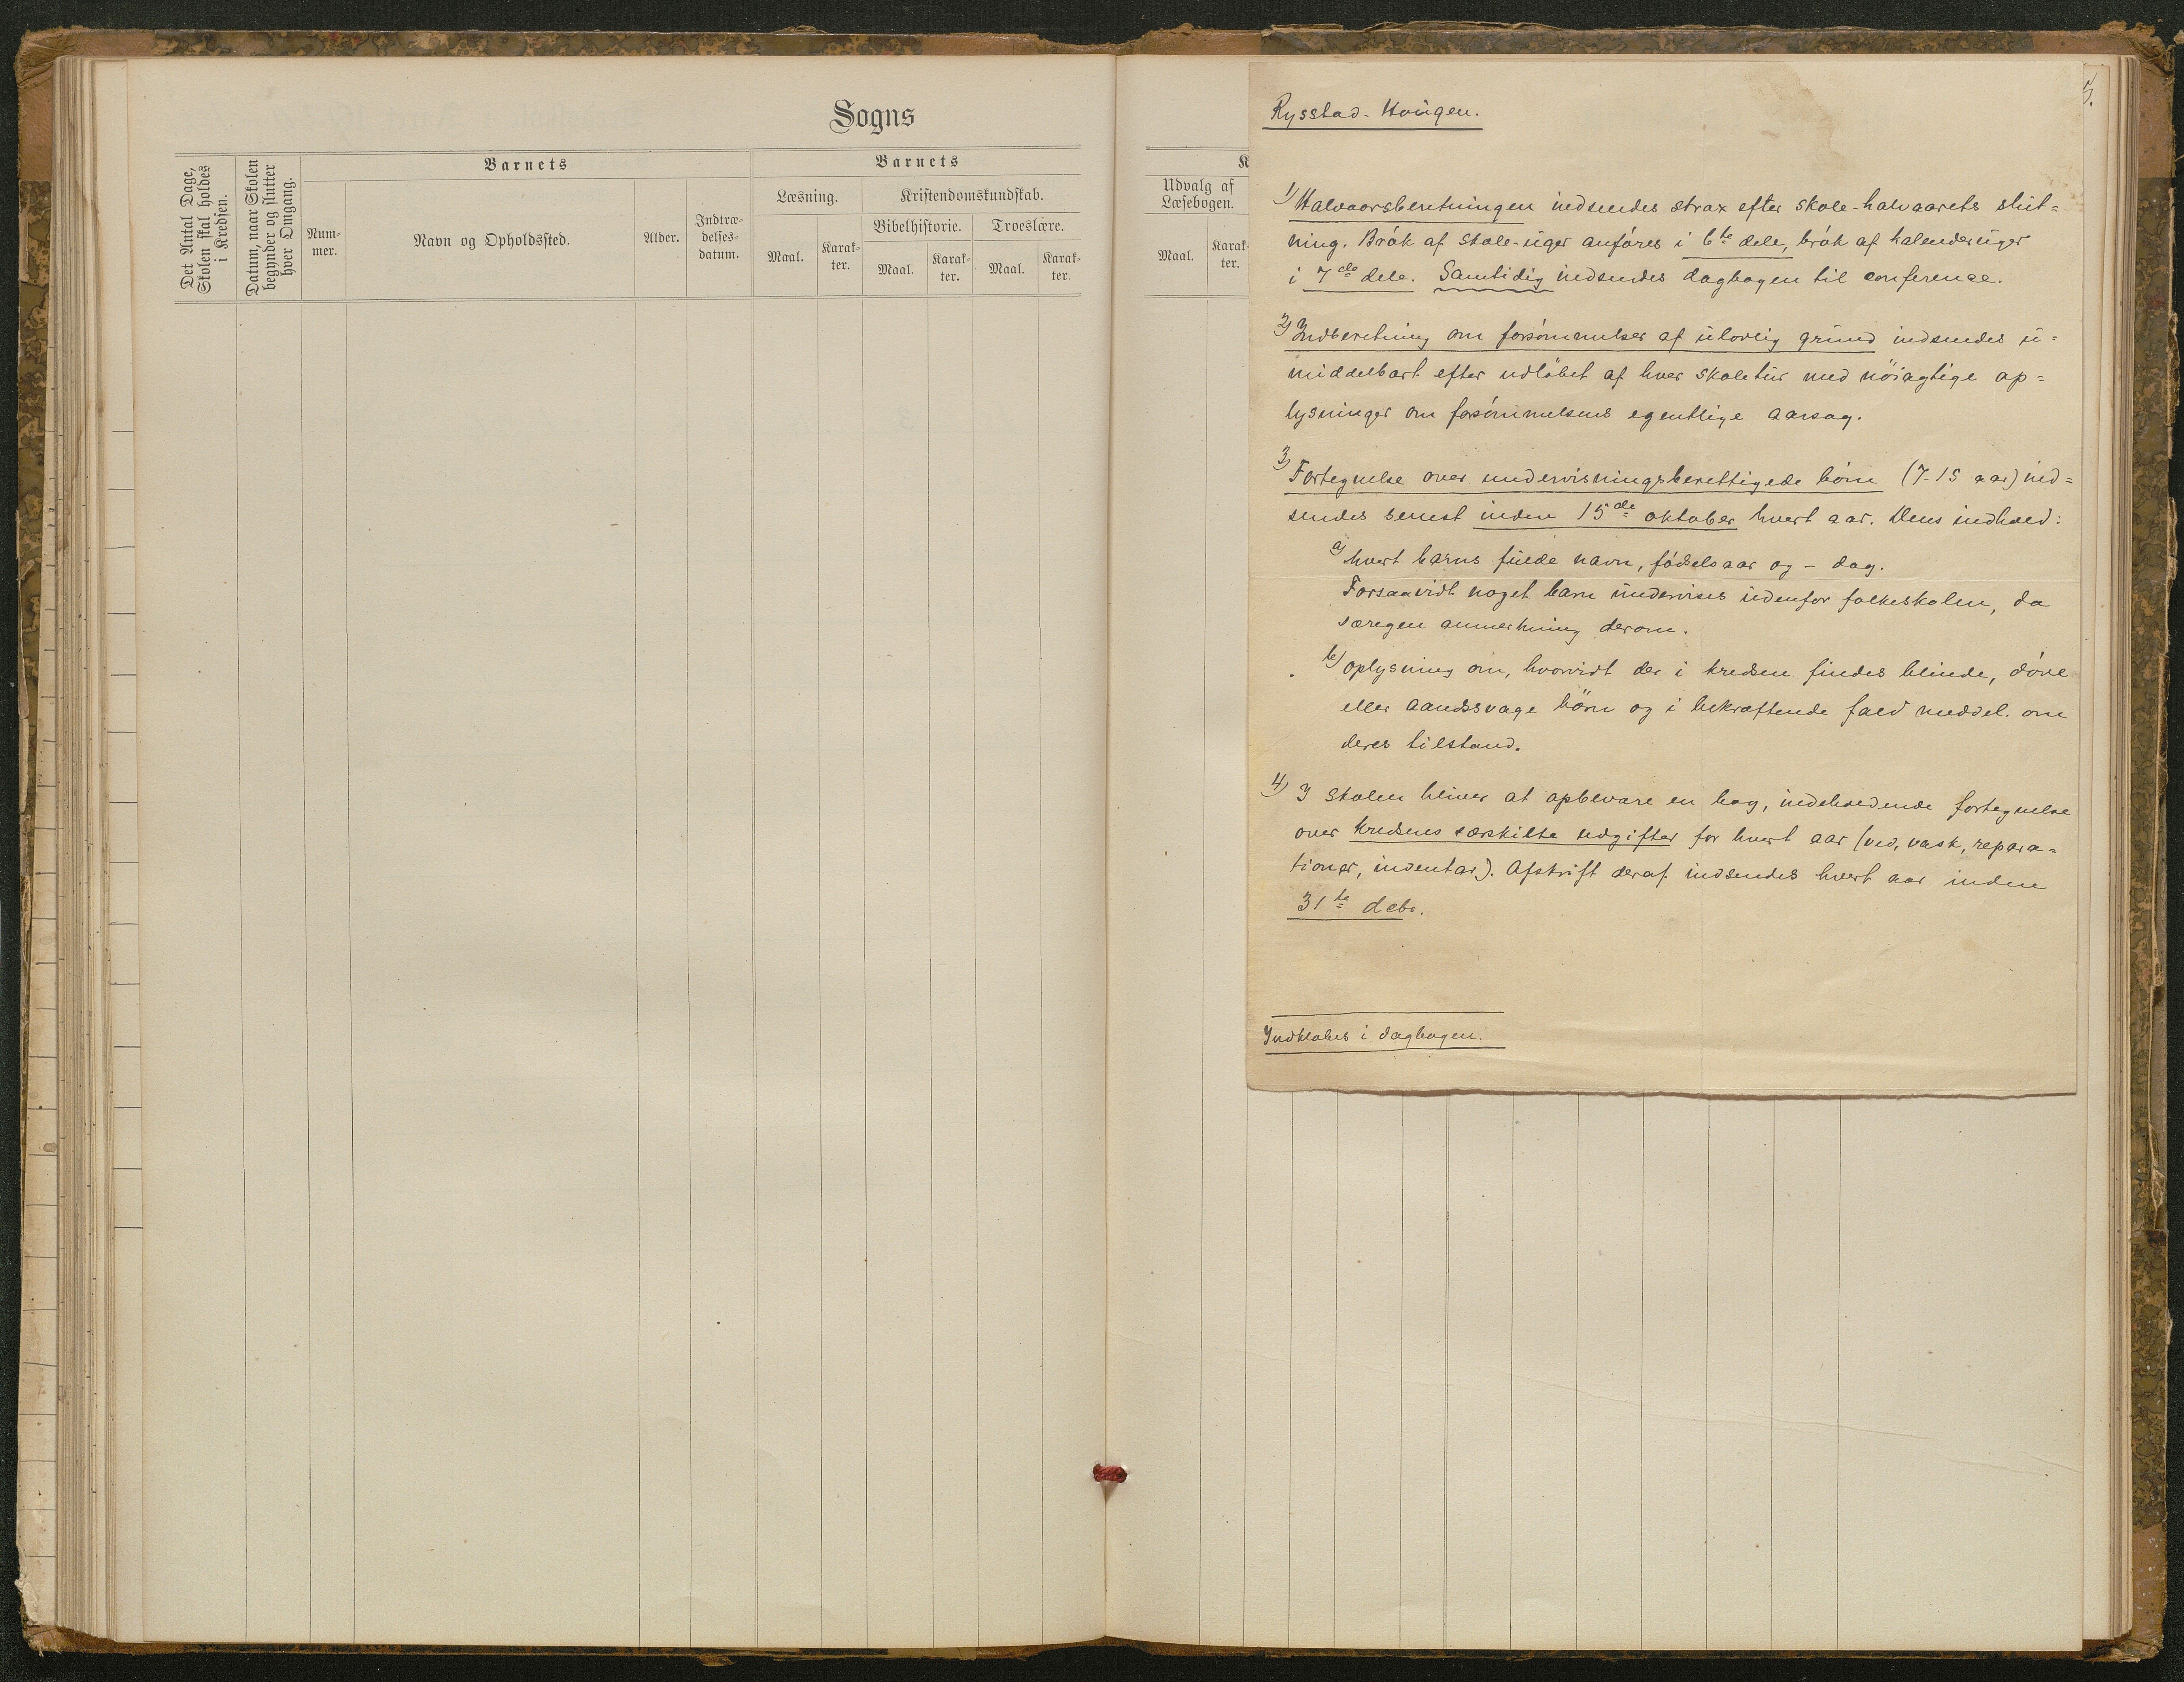 Sogns
Det Antal Dage,
Skolen skal holdes
i Kredsen.
Datum, naar Skolen
begynder og slutter
hver Omgang.
Barnets
Num-
mer.
Navn og Opholdssted.
Alder.
Indtræ-
delses-
datum.
Barnets
Læsning.
Maal.
Karak-
ter.
Kristendomskundskab.
Bibelhistorie.
Maal.
Karak-
ter.
Troeslære.
Maal.
Karak-
ter.
K
Udvalg af
Læsebogen.
Maal.
Karak-
ter.
5.
Rysstad-Hougen.
1) Halvaarsberetningen indsendes strax efter skole-halvaarets slut=
ning. Brøk af skole-uger anføres i 6te dele, brøk af kalenderuger
i 7de dele. Samtidig indsendes dagbogen til conference.
2) Indberetning om forsømmelser af ulovlig grund indsendes u=
middelbart efter udløbet af hver skoletur med nöiagtige op=
lysninger om forsømmelsens egentlige aarsag.
3) Fortegnelse over undervisningsberettigede børn (7-15 aar) ind=
sendes senest inden 15de oktober hvert aar. Dens indhold:
a) hvert barns fulde navn, fødselsaar og - dag.
Forsaavidt noget barn undervises udenfor folkeskolen, da
særegen anmerkning derom.
b) oplysning om, hvorvidt der i kredsen findes blinde, døve
eller aandssvage börn og i bekræftende fald meddel. om
deres tilstand.
4) I skolen bliver at opbevare en bog, indeholdende fortegnelse
over kredsens særskilte udgifter for hvert aar (ved, vask, repara=
tioner, indentar). Afskrift deraf indsendes hvert aar inden
31te debr.
Indklæbes i dagbogen.